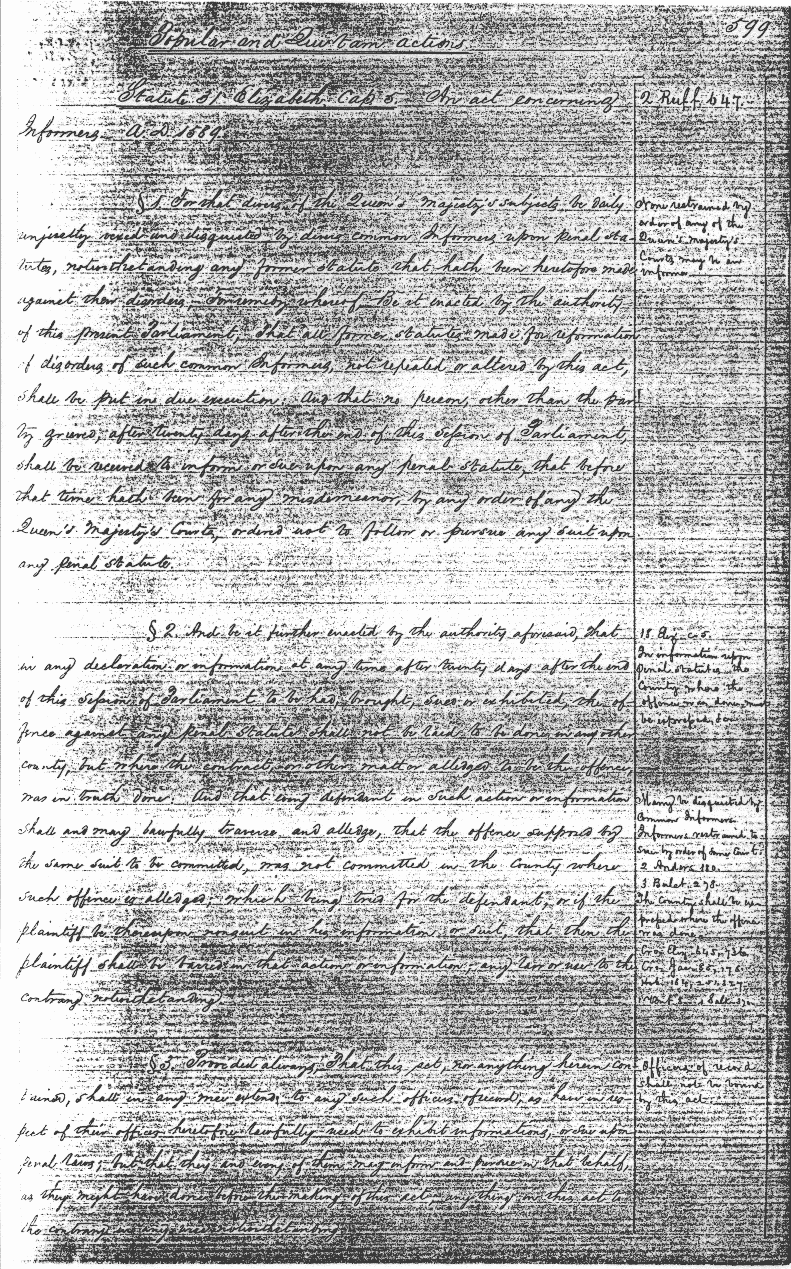 599
Popular and Qui tam actions.
Statute 31 Elizabeth, Cap 5. An act concerning
2 Ruff. 647.
Informers. A.D. 1589.
§ 1. For that divers of the Queen's Majesty's subjects be daily
unjustly vexed and disquieted by divers common Informers upon penal sta-
tutes, notwithstanding any former statute that hath been heretofore made
against their disorders; For remedy whereof, Be it enacted by the authority
of this present Parliament, That all former statutes made for reformation
of disorders of such common Informers, not repealed or altered by this act,
shall be put in due execution; And that no person, other than the par
ty grieved, after twenty days after the end of this Session of Parliament,
shall be received to inform or sue upon any penal statute, that before
that time hath been for any misdemeanor, by any order of any the
Queen's Majesty's Courts, ordered not to follow or pursue any suit upon
any penal statute.
None restrained by
order of any of the
Queen's Majesty's
Courts may be an
informer.
§ 2. And be it further enacted by the authority aforesaid, that
in any declaration or information at any time after twenty days after the end
of this Session of Parliament to be had, brought, sued or exhibited, the of
fence against any penal statute shall not be laid to be done in any other
county, but where the contract or other matter alledged to be the offence,
was in truth done. And that every defendant in such action or information
shall and may lawfully traverse and alledge, that the offence supposed by
the same suit to be committed, was not committed in the County where
such offence is alledged; which being tried for the defendant, or if the
plaintiff be thereupon nonsuit in his information or suit, that then the
plaintiff shall be barred in that action or information; any law or use to the
contrary notwithstanding.
18 Eliz. c. 5.
In information upon
penal statutes the
County where the
offence was done must
be
Many be disquieted by
Common Informers.
Informers restrained to
sue by order of some Court.
2 Anders. 180.
3 Bulst. 278.
The County shall be ex-
pressed where the offence
was done.
Cro. Eliz. 645, 736.
Cro. Jac. 85, 178.
Hob. 184, 251, 327.
§ 3. Provided always, That this act, nor anything herein con-
tained, shall in any wise extend to any such officers of record, as have in res-
pect of their offices heretofore lawfully used to exhibit informations, or sue upon
penal laws; but that they and every of them may inform and pursue in that behalf,
as they might have done before the making of this act; anything in this act to
the contrary in any wise notwithstanding.
Officers of record
shall not be bound
by this act.